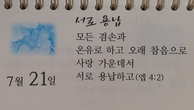 서로 용납
모든 겸손과
온유로 하고 오래 참음으로
사랑 가운데서
서로 용납하고(엡 4:2)
7월 21일